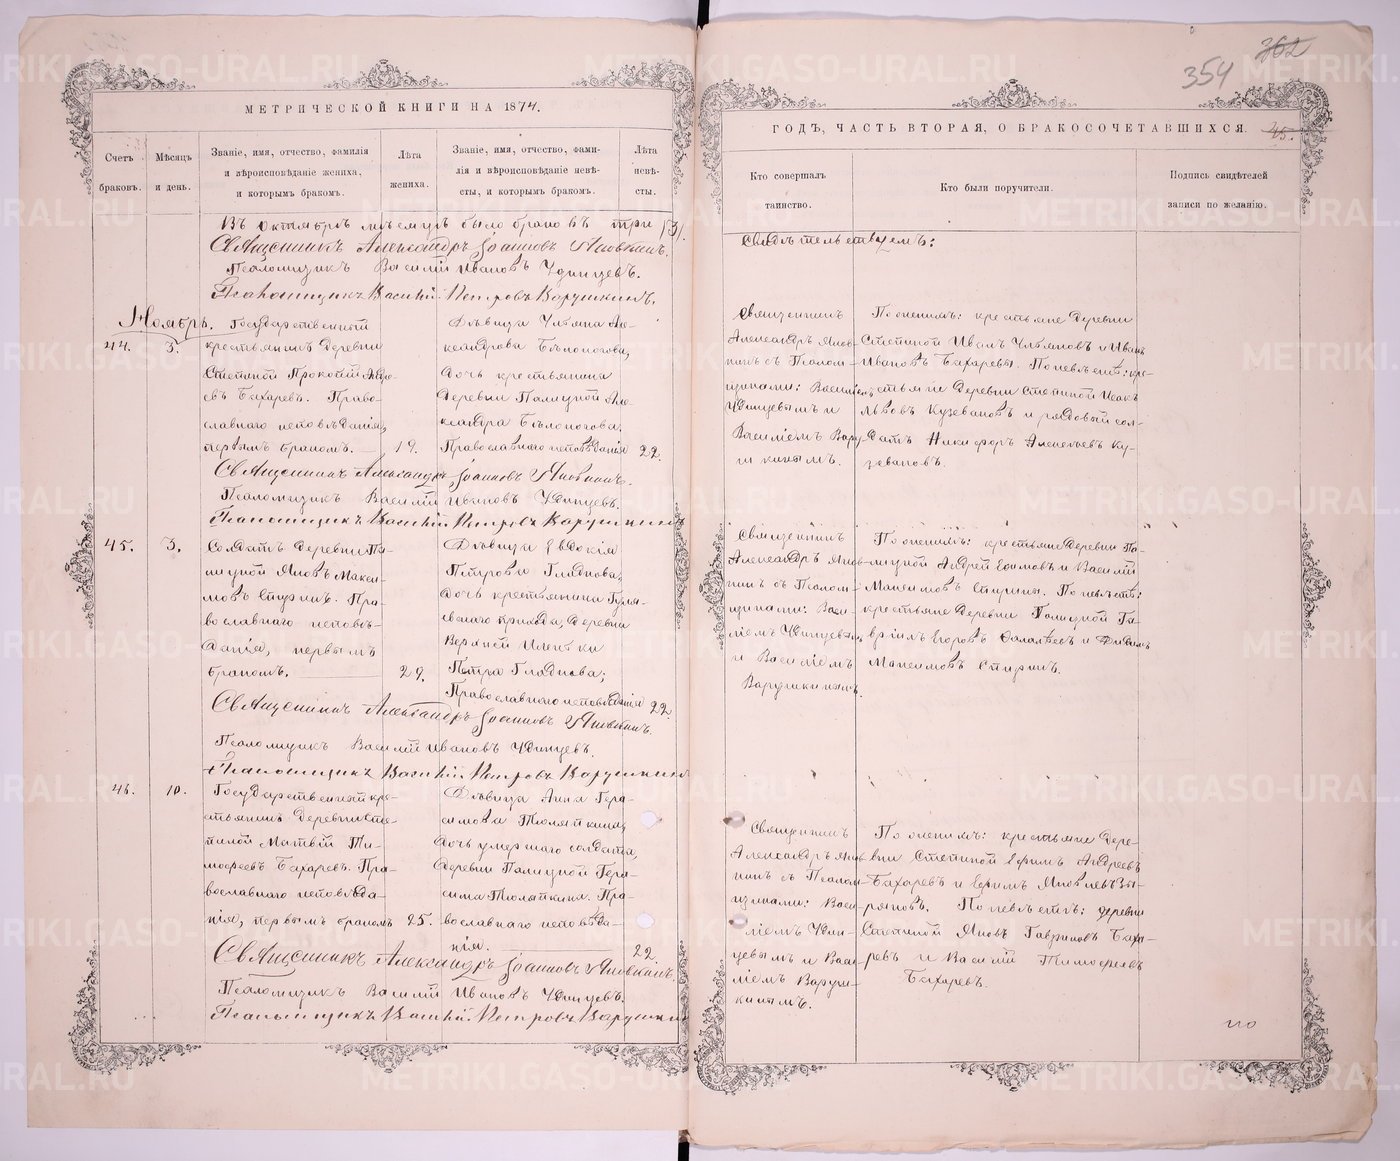 362
354
МЕТРИЧЕСКОЙ КНИГИ НА 1874.
Счетъ браковъ.
Мѣсяцъ и день.
Званіе, имя, отчество, фамилія
и вѣроисповѣданіе жениха,
и которымъ бракомъ.
Лѣта жениха.
Званіе, имя, отчество, фами-
лія и вѣроисповѣданіе невѣ-
сты, и которымъ бракомъ.
Лѣта невѣ-
сты.
Въ Октябрѣ мѣсяцѣ было браковъ три /3/.
Священникъ Александръ Іоанновъ Яновкинъ.
Псаломщикъ Василій Ивановъ Удинцевъ.
Псаломщикъ Василій Петровъ Варушкинъ.
Ноябрь.
44.
3.
Государственный
крестьянинъ деревни
Степиной Прокопій
евъ Бахаревъ. Право-
славнаго исповѣданія,
первымъ бракомъ.
19.
Дѣвица Ульяна Але-
ксандрова Бѣлоногова,
дочь крестьянина
деревни Палицной Але-
ксандра Бѣлоногова.
Православнаго исповѣданія
22.
Священникъ Александръ Іоанновъ Яновкинъ.
Псаломщикъ Василій Ивановъ Удинцевъ.
Псаломщикъ Василій Петровъ Варушкинъ
45.
3.
Солдатъ деревни Па-
лицной Яковъ Макси-
мовъ Спиринъ. Пра-
вославнаго исповѣ-
данія, первымъ
бракомъ.
29.
Дѣвица Евдокія
Петрова Гладкова,
дочь крестьянина
скаго прихода, деревни
Верхней
Петра Гладкова;
Православнаго исповѣданія
22.
Священникъ Александръ Іоанновъ Яновкинъ.
Псаломщикъ Василій Ивановъ Удинцевъ.
Псаломщикъ Василій Петровъ Варушкинъ
46.
10.
Государственный кре-
стьянинъ деревни Сте-
пиной Матвѣй Ти-
мофеевъ Бахаревъ. Пра-
вославнаго исповѣда-
нія, первымъ бракомъ
25.
Дѣвица Анна Гера-
симова Тюляпкина,
дочь умершаго солдата,
деревни Палицной Гера-
сима Тюляпкина. Пра-
вославнаго исповѣда-
нія.
22
Священникъ Александръ Іоанновъ Яновкинъ.
Псаломщикъ Василій Ивановъ Удинцевъ.
Псаломщикъ Василій Петровъ Варушкинъ
ГОДЪ, ЧАСТЬ ВТОРАЯ, О БРАКОСОЧЕТАВШИХСЯ.
45.
Кто совершалъ
таинство.
Кто были поручители.
Подпись свидѣтелей
записи по желанію.
свидѣтельствуемъ:
Священникъ
Александръ Янов-
кинъ съ Псалом-
щиками: Василіемъ
Удинцевымъ и
Василіемъ Вару-
шкинымъ.
По женихѣ: крестьяне деревни
Степиной Иванъ Ульяновъ и Иванъ
Ивановъ Бахаревы. По невѣстѣ: кре-
стьяне деревни Степиной Исакъ
Львовъ Кузевановъ и рядовый сол-
датъ Никифоръ Алексѣевъ Ку-
зевановъ.
Священникъ
Александръ Янов-
кинъ съ Псалом-
щиками: Васи-
ліемъ Удинцевымъ
и Василіемъ
Варушкинымъ.
По женихѣ: крестьяне деревни Па-
лицной Андрей Ефимовъ и Василій
Максимовъ Спирины. По невѣстѣ:
крестьяне деревни Палицной Га-
вріилъ Егоровъ и
Максимовъ Спиринъ.
Священникъ
Александръ Янов-
кинъ съ Псалом-
щиками: Васи-
ліемъ Удин-
цевымъ и Васи-
ліемъ Варуш-
кинымъ.
По женихѣ: крестьяне дере-
вни Степиной Ефимъ Андреевъ
Бахаревъ и Ефимъ Яковлевъ Зы-
ряновъ. По невѣстѣ: деревни
Степиной Яковъ Гавриловъ Баха-
ревъ и Василій Тимофеевъ
Бахаревъ.
по
METRIKI.GASO-URAL.RU